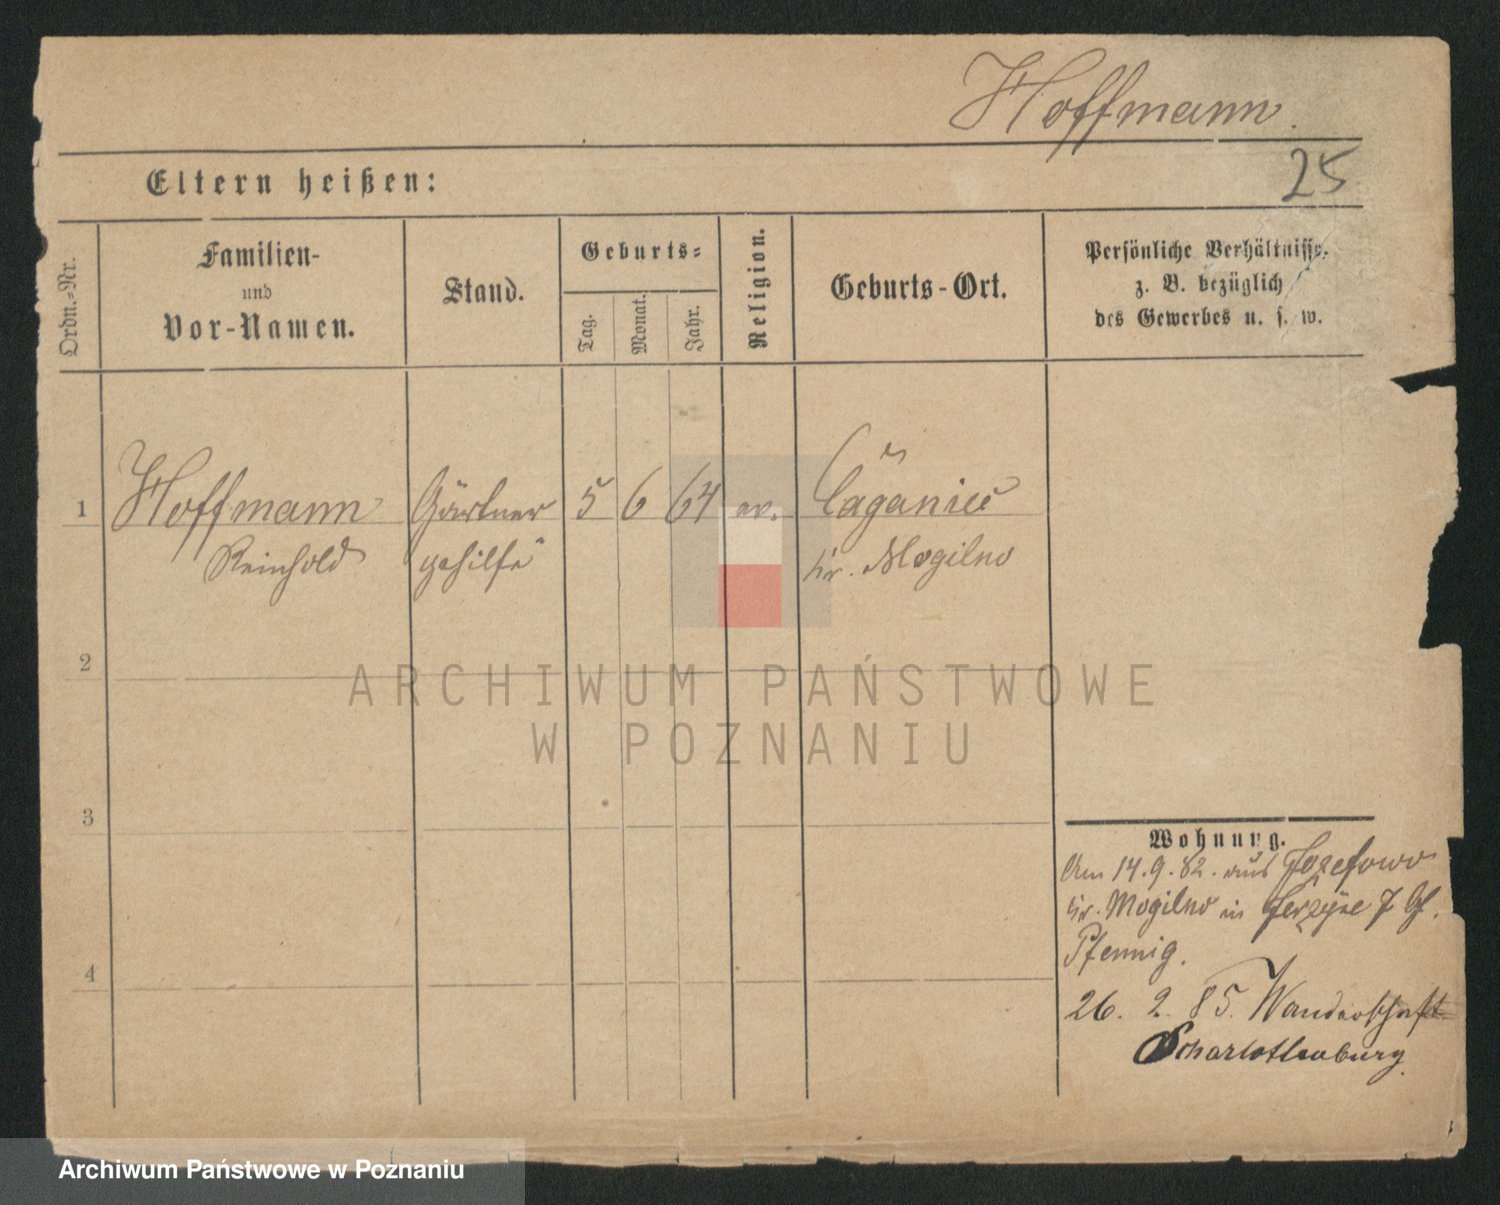 Hoffmann.
25
Eltern heißen:
Ordn.=Nr.
Familien-
und
Vor-Namen.
Stand.
Geburts=
Tag.
Monat.
Jahr.
Religion.
Geburts-Ort.
Persönliche Verhältnisse,
z. B. bezüglich
des Gewerbes u. s. w.
1 Hoffmann Gärtner 5 6 64 ev.
Reinhold gehilfe Kr. Mogilno
2
ARCHIWUM PAŃSTWOWE
W POZNANIU
3
Wohnung.
Am 14.9.82. aus Jozefowo
Kr. Mogilno in
Pfennig.
4
26. 2. 85. Wanderschaft
Charlottenburg.
Archiwum Państwowe w Poznaniu